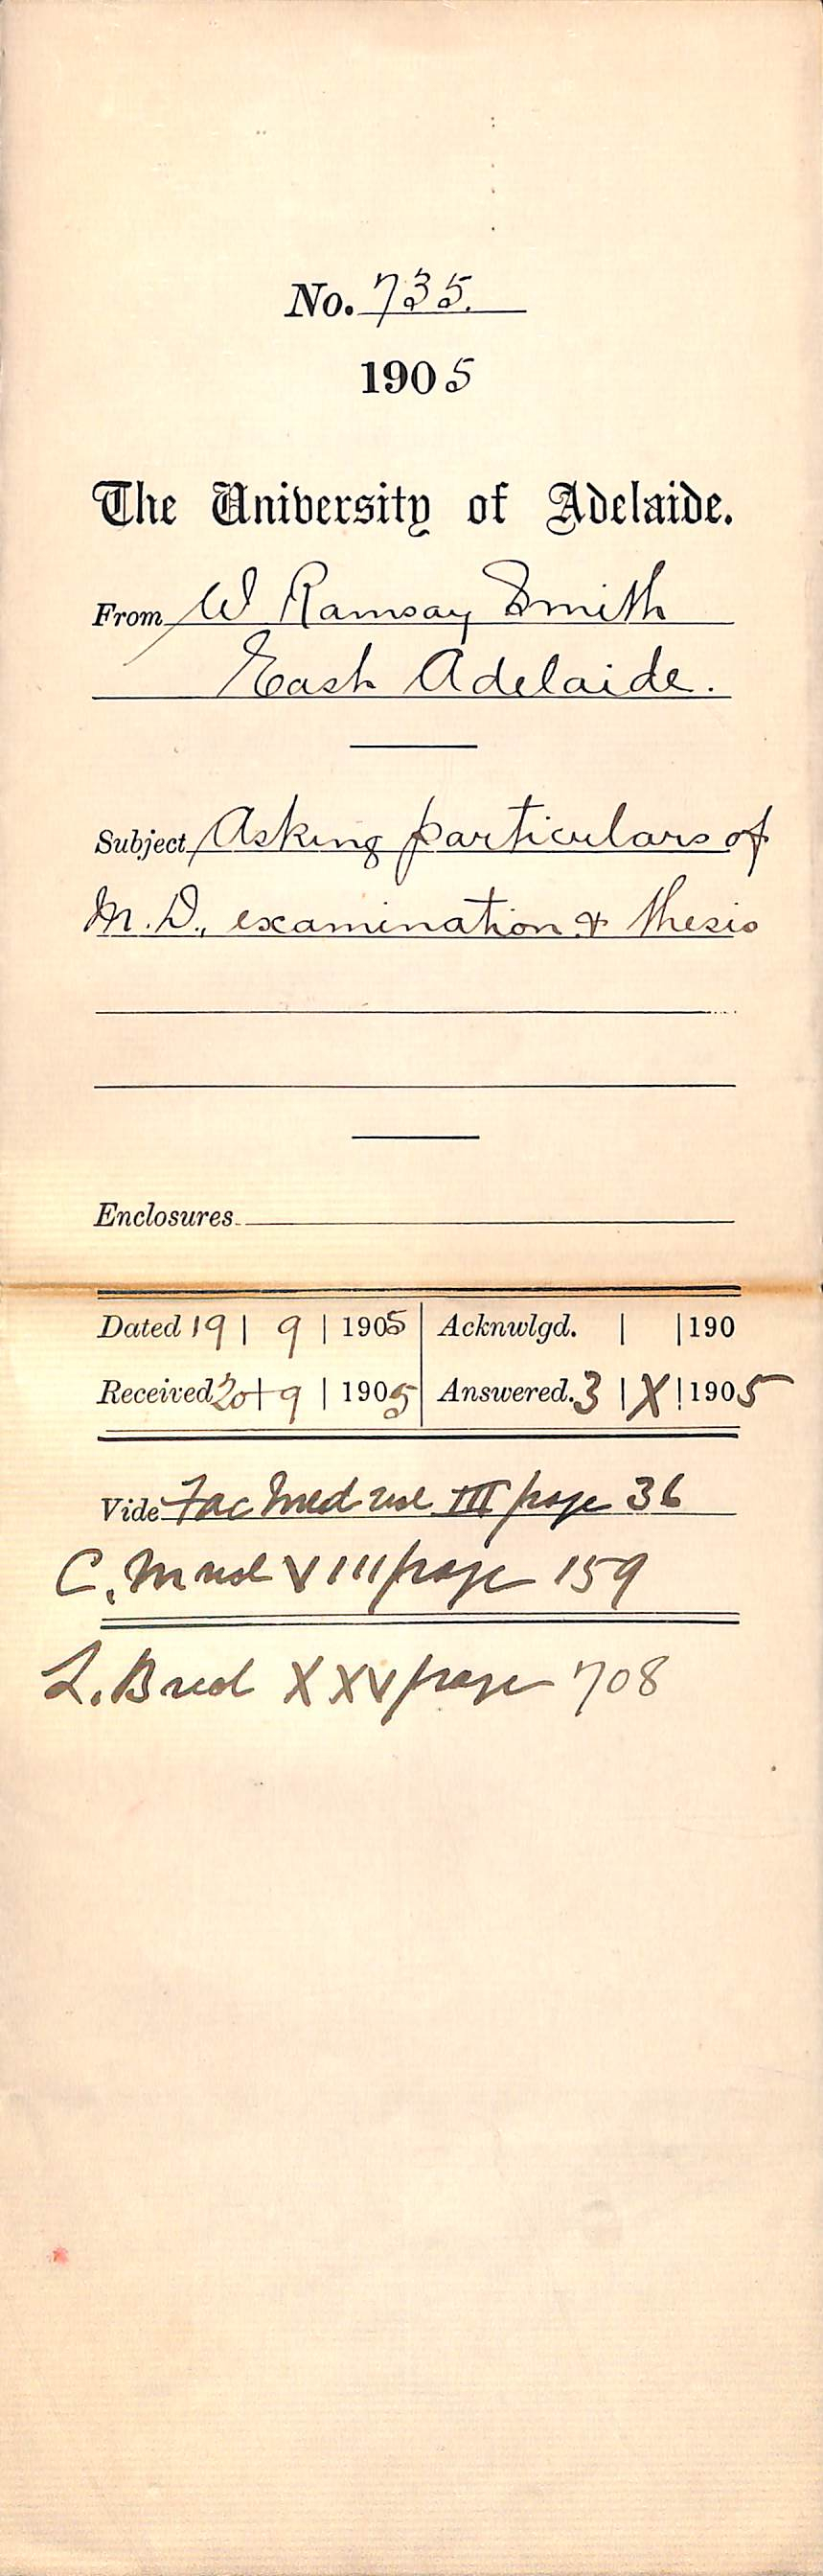 No. 735.
1905
The University of Adelaide.
From W Ramsay Smith
East Adelaide.
Subject Asking particulars of
M.D., examination & thesis
Enclosures
Dated 19 | 9 | 1905 | Acknwlgd. | | 190
Received 20 | 9 | 1905 | Answered. 3 | X | 1905
Vide Fac Med vol III page 36
C. M vol VIII page 159
L. B vol XXV page 708